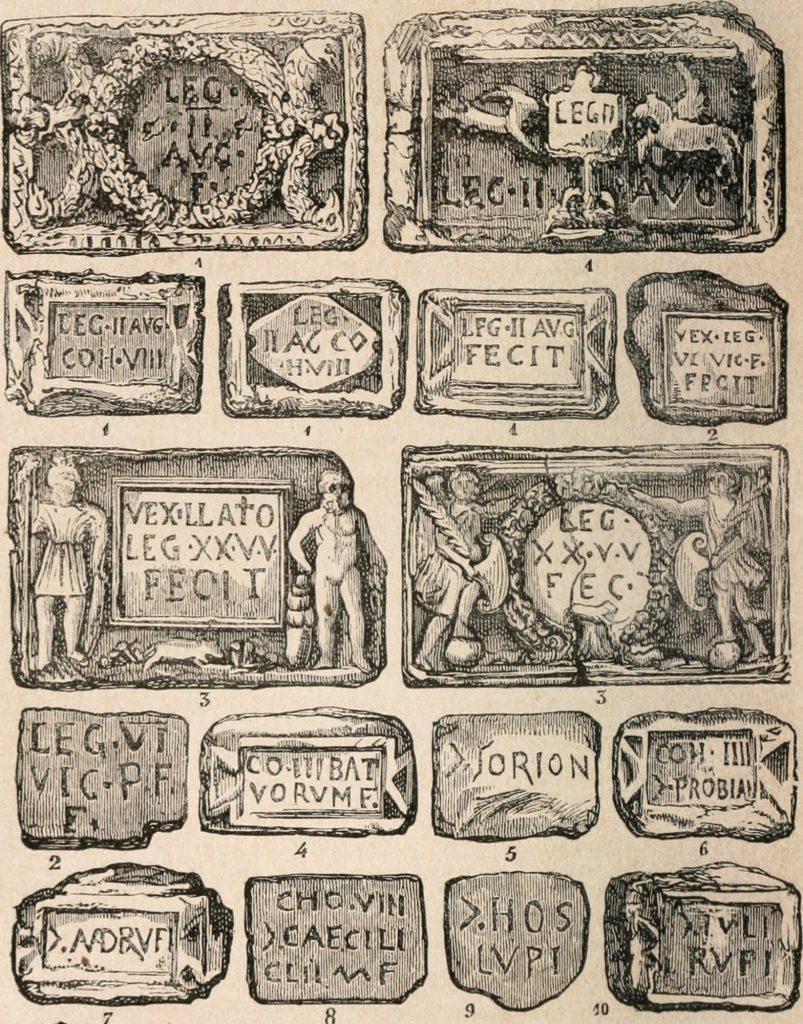 LEG·
II
AVG·
F·
LEGII
LEG·II·
AVG
1
1
LEG·II AVG·
COH·VIII
LEG·
II AG CO
HVIII
LEG·II AVG
FECIT
VEX·LEG·
VI VIC·F·
FECIT
1
1
1
2
VEXILLATO
LEG·XX·V·V
FECIT
LEG·
XX·V·V
FEC·
3
3
LEG·VI
VIC·P·F·
F·
CO·III BAT
VORVM F·
>ƧORION
COH·IIII
>·PROBIAN
2
4
5
6
CHO·VIII
>CAECILI
CLII·M F
>·HOS
LVPI
>IVLI
RVFI
7
8
9
10